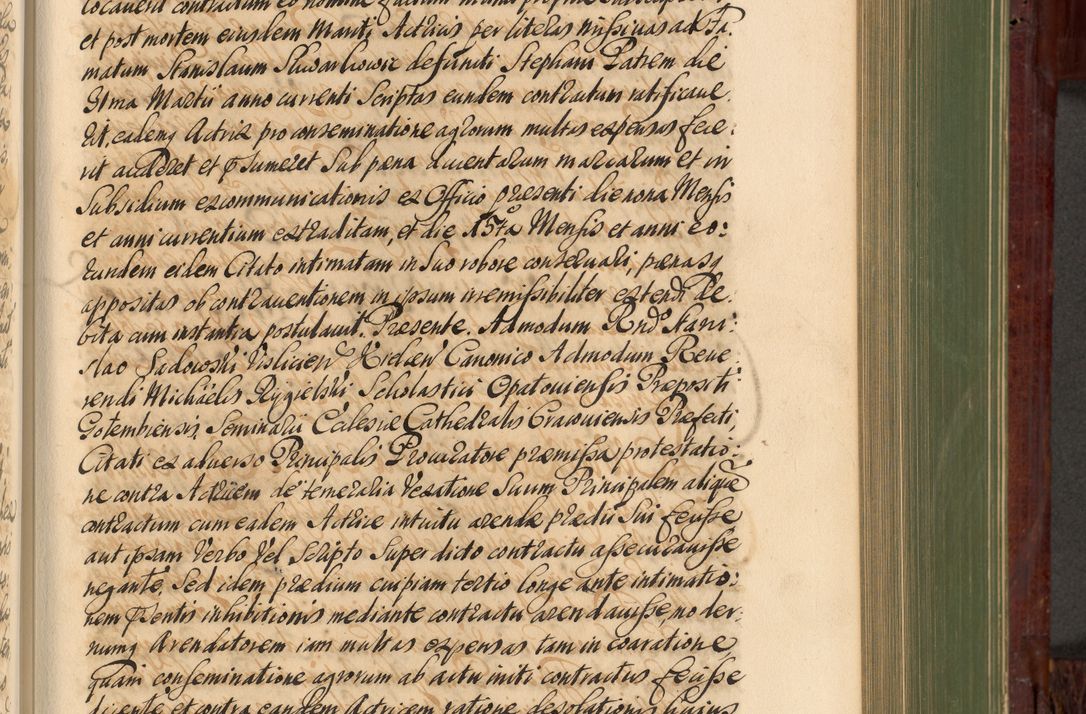 locaverit contractum eo nomine factum manu propria
et post mortem eiusdem Mariti Actricis per literas missivas ad Fa:
matum Stanislaum Skwarkowic defuncti Stephani Patrem die
31ma Martii anno currenti Scriptas eundem contractum ratificave:
rit, eadem Actrix pro conseminatione agrorum multas expensas fece:
rit accederet et p̄sumeret Sub pœna ducentarum marcarum et in
Subsidium excommunicationis ex Officio præsenti die nona Mensis
et anni currentium extraditam, et die 15ta Mensis et anni eo:
rundem eidem Citato intimatam in Suo robore conservari, pœnasq
appositas ob contraventionem in ipsum irremissibiliter extendi De:
bita cum instantia postulavit. Præsente. Admodum Rndo Stani:
slao Sadowski Vislicien Kielcen Canonico Admodum Reve:
rendi Michaëlis Rygielski Scholastici Opatoviensis Præpositi
Gotembiensis, Seminarii Ecclesiæ Cathedralis Cracoviensis Præfecti,
Citati ex adverso Principalis Procuratore præmissa protestatio:
ne contra Actricem de temeraria Vexatione Suum Principalem aliquē
contractum cum eadem Actrice intuitu arendæ prædii Sui fecisse,
aut ipsam Verbo Vel Scripto Super dicto contractu assecuravisse
negante, Sed idem prædium cuipiam tertio longe ante intimatio:
nem p̄sentis inhibitionis mediante contractu arendavisse, moder:
numq Arendatorem iam multas expensas tam in coaratione
quam conseminatione agrorum ab actu initi contractus fecisse
dicente et contra eandem Actricem ratione desolationis huius